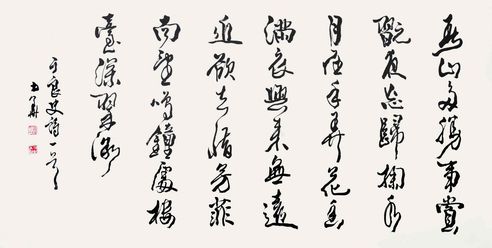 春山多勝事賞
翫夜忘歸掬水
月在手弄花香
滿衣興來無遠
近欲去惜芳菲
南望鳴鐘處樓
臺深翠微
于良史詩一首